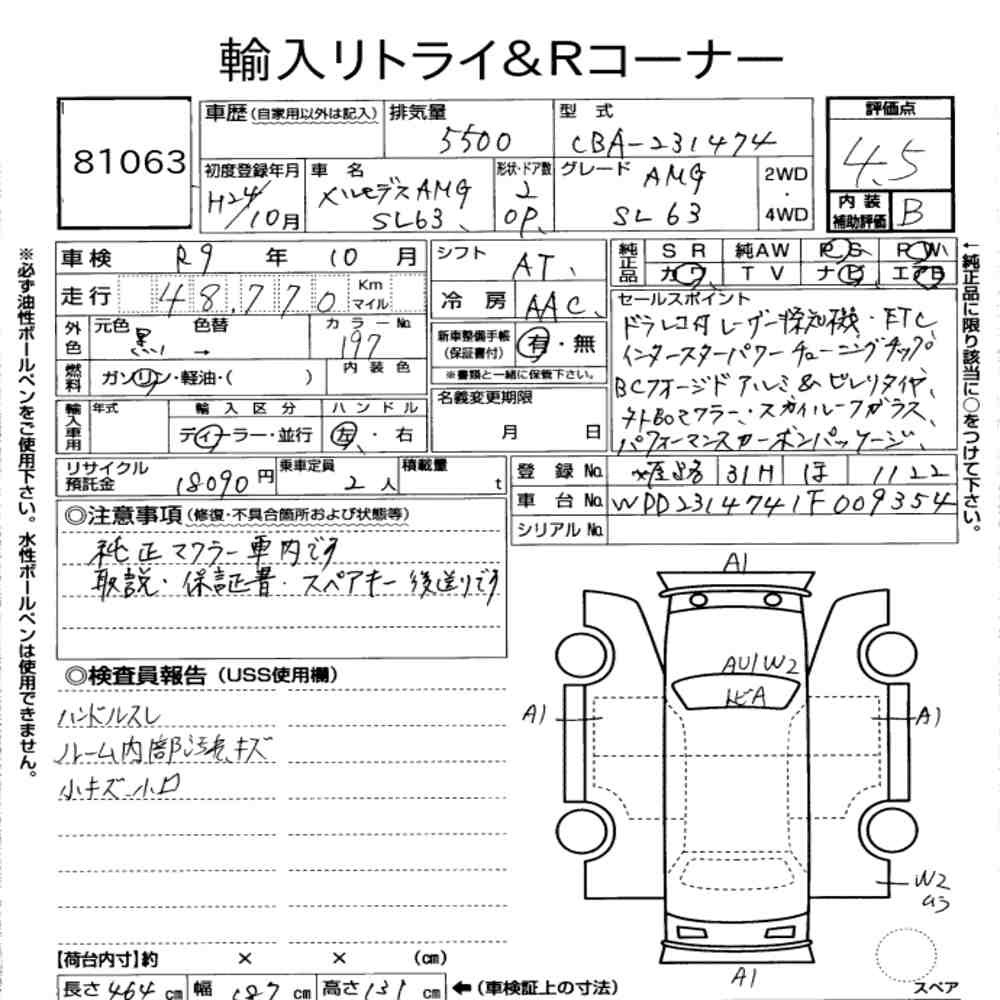 輸入リトライ&Rコーナー
81063
車歴(自家用以外は記入)
排気量
5500
型式
CBA-231474
評価点
4.5
初度登録年月
H24/10月
車名
メルセデスAMG
SL63
形状・ドア数
2
OP
グレード
AMG
SL63
2WD
・
4WD
内装
補助評価
B
車検 R9 年 10 月
走行 48,770 Km
マイル
シフト AT
冷房 AAC
純正品
SR 純AW PS PW
カワ TV ナビ エアB
外色
元色 黒 色替 →
カラーNo. 197
内装色
燃料
ガソリン・軽油・( )
新車整備手帳
(保証書付)
有・無
※書類と一緒に保管下さい。
セールスポイント
ドラレコ付レーザー探知機・ETC
インタースターパワーチューニングチップ
BCフォージドアルミ&ピレリタイヤ、
チトBoマフラー、スカイルーフガラス、
パフォーマンスカーボンパッケージ、
輸入車用
年式
輸入区分
ディーラー・並行
ハンドル
左・右
名義変更期限
月 日
リサイクル
預託金
18090円
乗車定員
2人
積載量
t
登録No. 姫路 31H ほ 1122
車台No. WDD2314741F009354
シリアルNo.
◎注意事項(修復・不具合箇所および状態等)
純正マフラー車内です
取説・保証書・スペアキー後送りです
◎検査員報告(USS使用欄)
ハンドルスレ
ルーム内部汚れ、キズ
小キズ、小凹
A1
AU1W2
トビA
A1
A1
W2
U3
A1
スペア
【荷台内寸】約 × × (cm)
長さ464cm 幅187cm 高さ131cm ←(車検証上の寸法)
※必ず油性ボールペンをご使用下さい。水性ボールペンは使用できません。
←純正品に限り該当に○をつけて下さい。